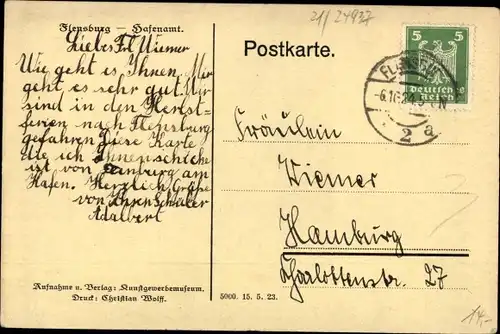 21/24937
Flensburg — Hafenamt.
Liebes Frl Wiemer
Wie geht es Ihnen, Mir
geht es sehr gut. Wir
sind in den Herbst-
ferien nach Flensburg
gefahren Diese Karte
die ich Ihnen schicke
ist von am
Hafen. Herzlich Grüße
von Ihren Schüler
Adalbert
Aufnahme u. Verlag: Kunstgewerbemuseum.
Druck: Christian Wolff.
Postkarte.
5 5
Deutsches
Reich
FLENSBURG
-6.10.24.
2 a
Fräulein
Wiemer
Hamburg
Charlottenstr. 27
5000. 15. 5. 23.
14.-